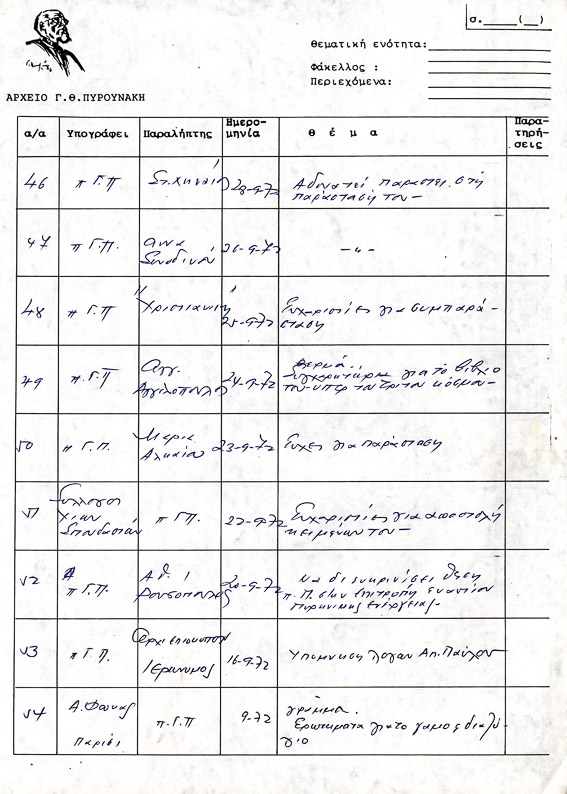 σ. ( )
Θεματική ενότητα:
Φάκελλος :
Περιεχόμενα:
ΑΡΧΕΙΟ Γ.Θ.ΠΥΡΟΥΝΑΚΗ
α/α Υπογράφει Παραλήπτης Ημερομηνία θ έ μ α Παρατηρήσεις
46 π Γ.Π 28-9-72 Αδυνατεί παραστεί στη
παράσταση του —
47 π Γ.Π. Αννα
Συνοδινού 26-9-72 — " —
48 π Γ.Π "Χριστιανική 25-9-72 Ευχαριστίες για συμπαρά-
σταση
49 π.Γ.Π Αγγ.
Αγγελόπουλο 24-9-72 θερμά
συγχαρητήρια για το βιβλίο
του υπέρ του Τρίτου κόσμου —
50 π Γ.Π. Μαρία
Αλκαίου 23-9-72 Ευχές για παράσταση
51 Σύλλογος
Χίων
Σπουδαστών π ΓΠ. 22-9-72 Ευχαριστίες για αποστολή
κειμένων του —
52 π Γ.Π. Αθ.
Ρουσόπουλος 20-9-72 να διευκρινίσει θέση
π. Π. στην επιτροπή εναντίον
Πυρηνικής Ενέργειας-
53 π Γ.Π. Αρχιεπίσκοπον
Ιερώνυμος 16-9-72 Υπόμνηση λόγων Απ. Παύλου
54 Α. Φωκάς
Παρίσι π.Γ.Π 9-72 γράμμα.
Ερωτήματα για το γάμος διαζύ-
γιο